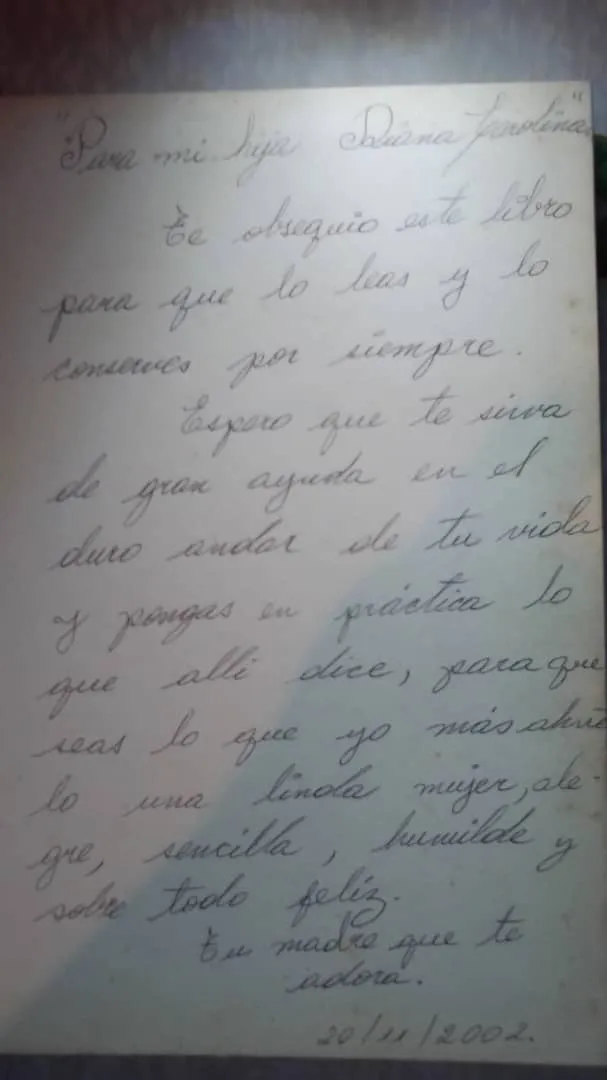 "Para mi hija Diana Carolina"
Te obsequio este libro
para que lo leas y lo
conserves por siempre.
Espero que te sirva
de gran ayuda en el
duro andar de tu vida
y pongas en práctica lo
que alli dice, para que
seas lo que yo más
lo una linda mujer, ale-
gre, sencilla, humilde y
sobre todo felíz.
Tu madre que te
adora.
20/11/2002.